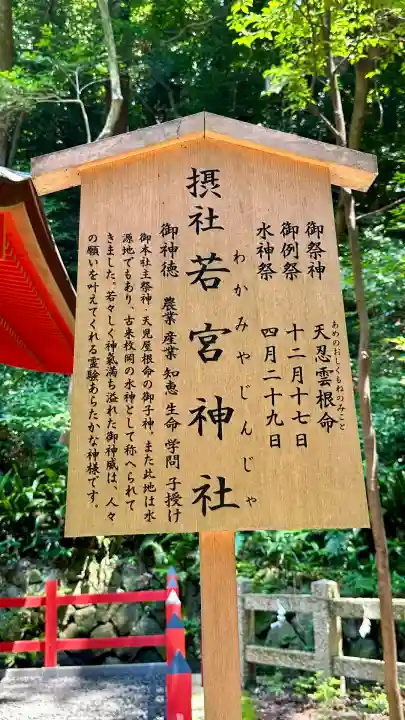 御祭神 天忍雲根命
あめのおしくもねのみこと
御例祭 十二月十七日
水神祭 四月二十九日
摂社 若宮神社
わかみやじんじゃ
御神徳 農業 産業 知恵 生命 学問 子授け
御本社主祭神・天児屋根命の御子神、また此地は水
源地でもあり、古来枚岡の水神として称へられて
きました。若々しく神氣満ち溢れた御神威は、人々
の願いを叶えてくれる霊験あらたかな神様です。